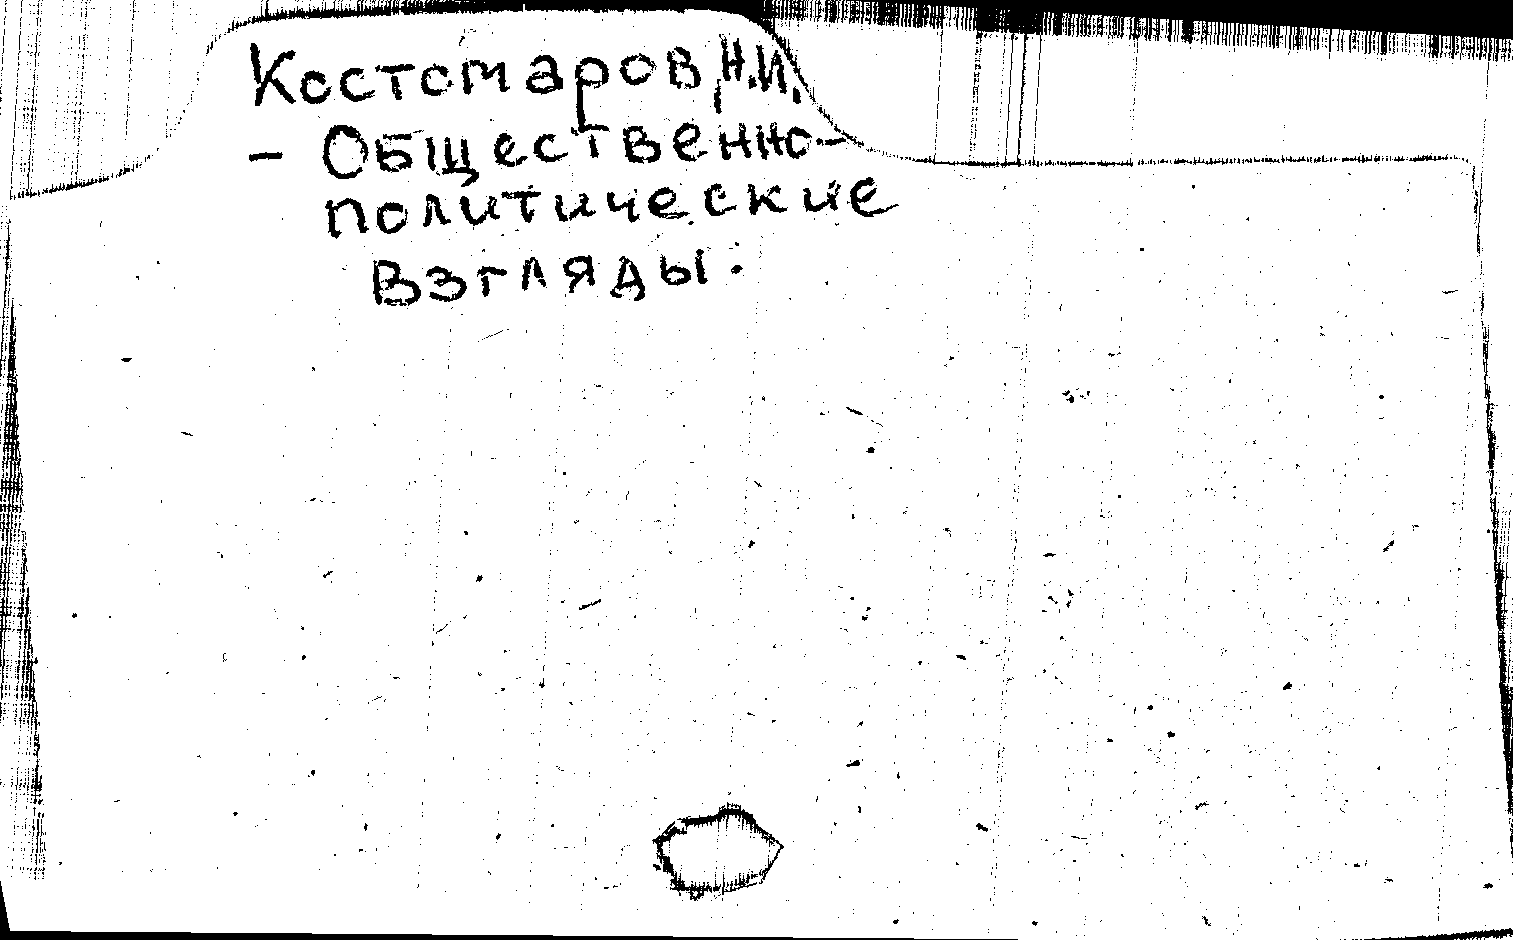 Костомаров, Н.И.
- Общественно-
политические
взгляды.